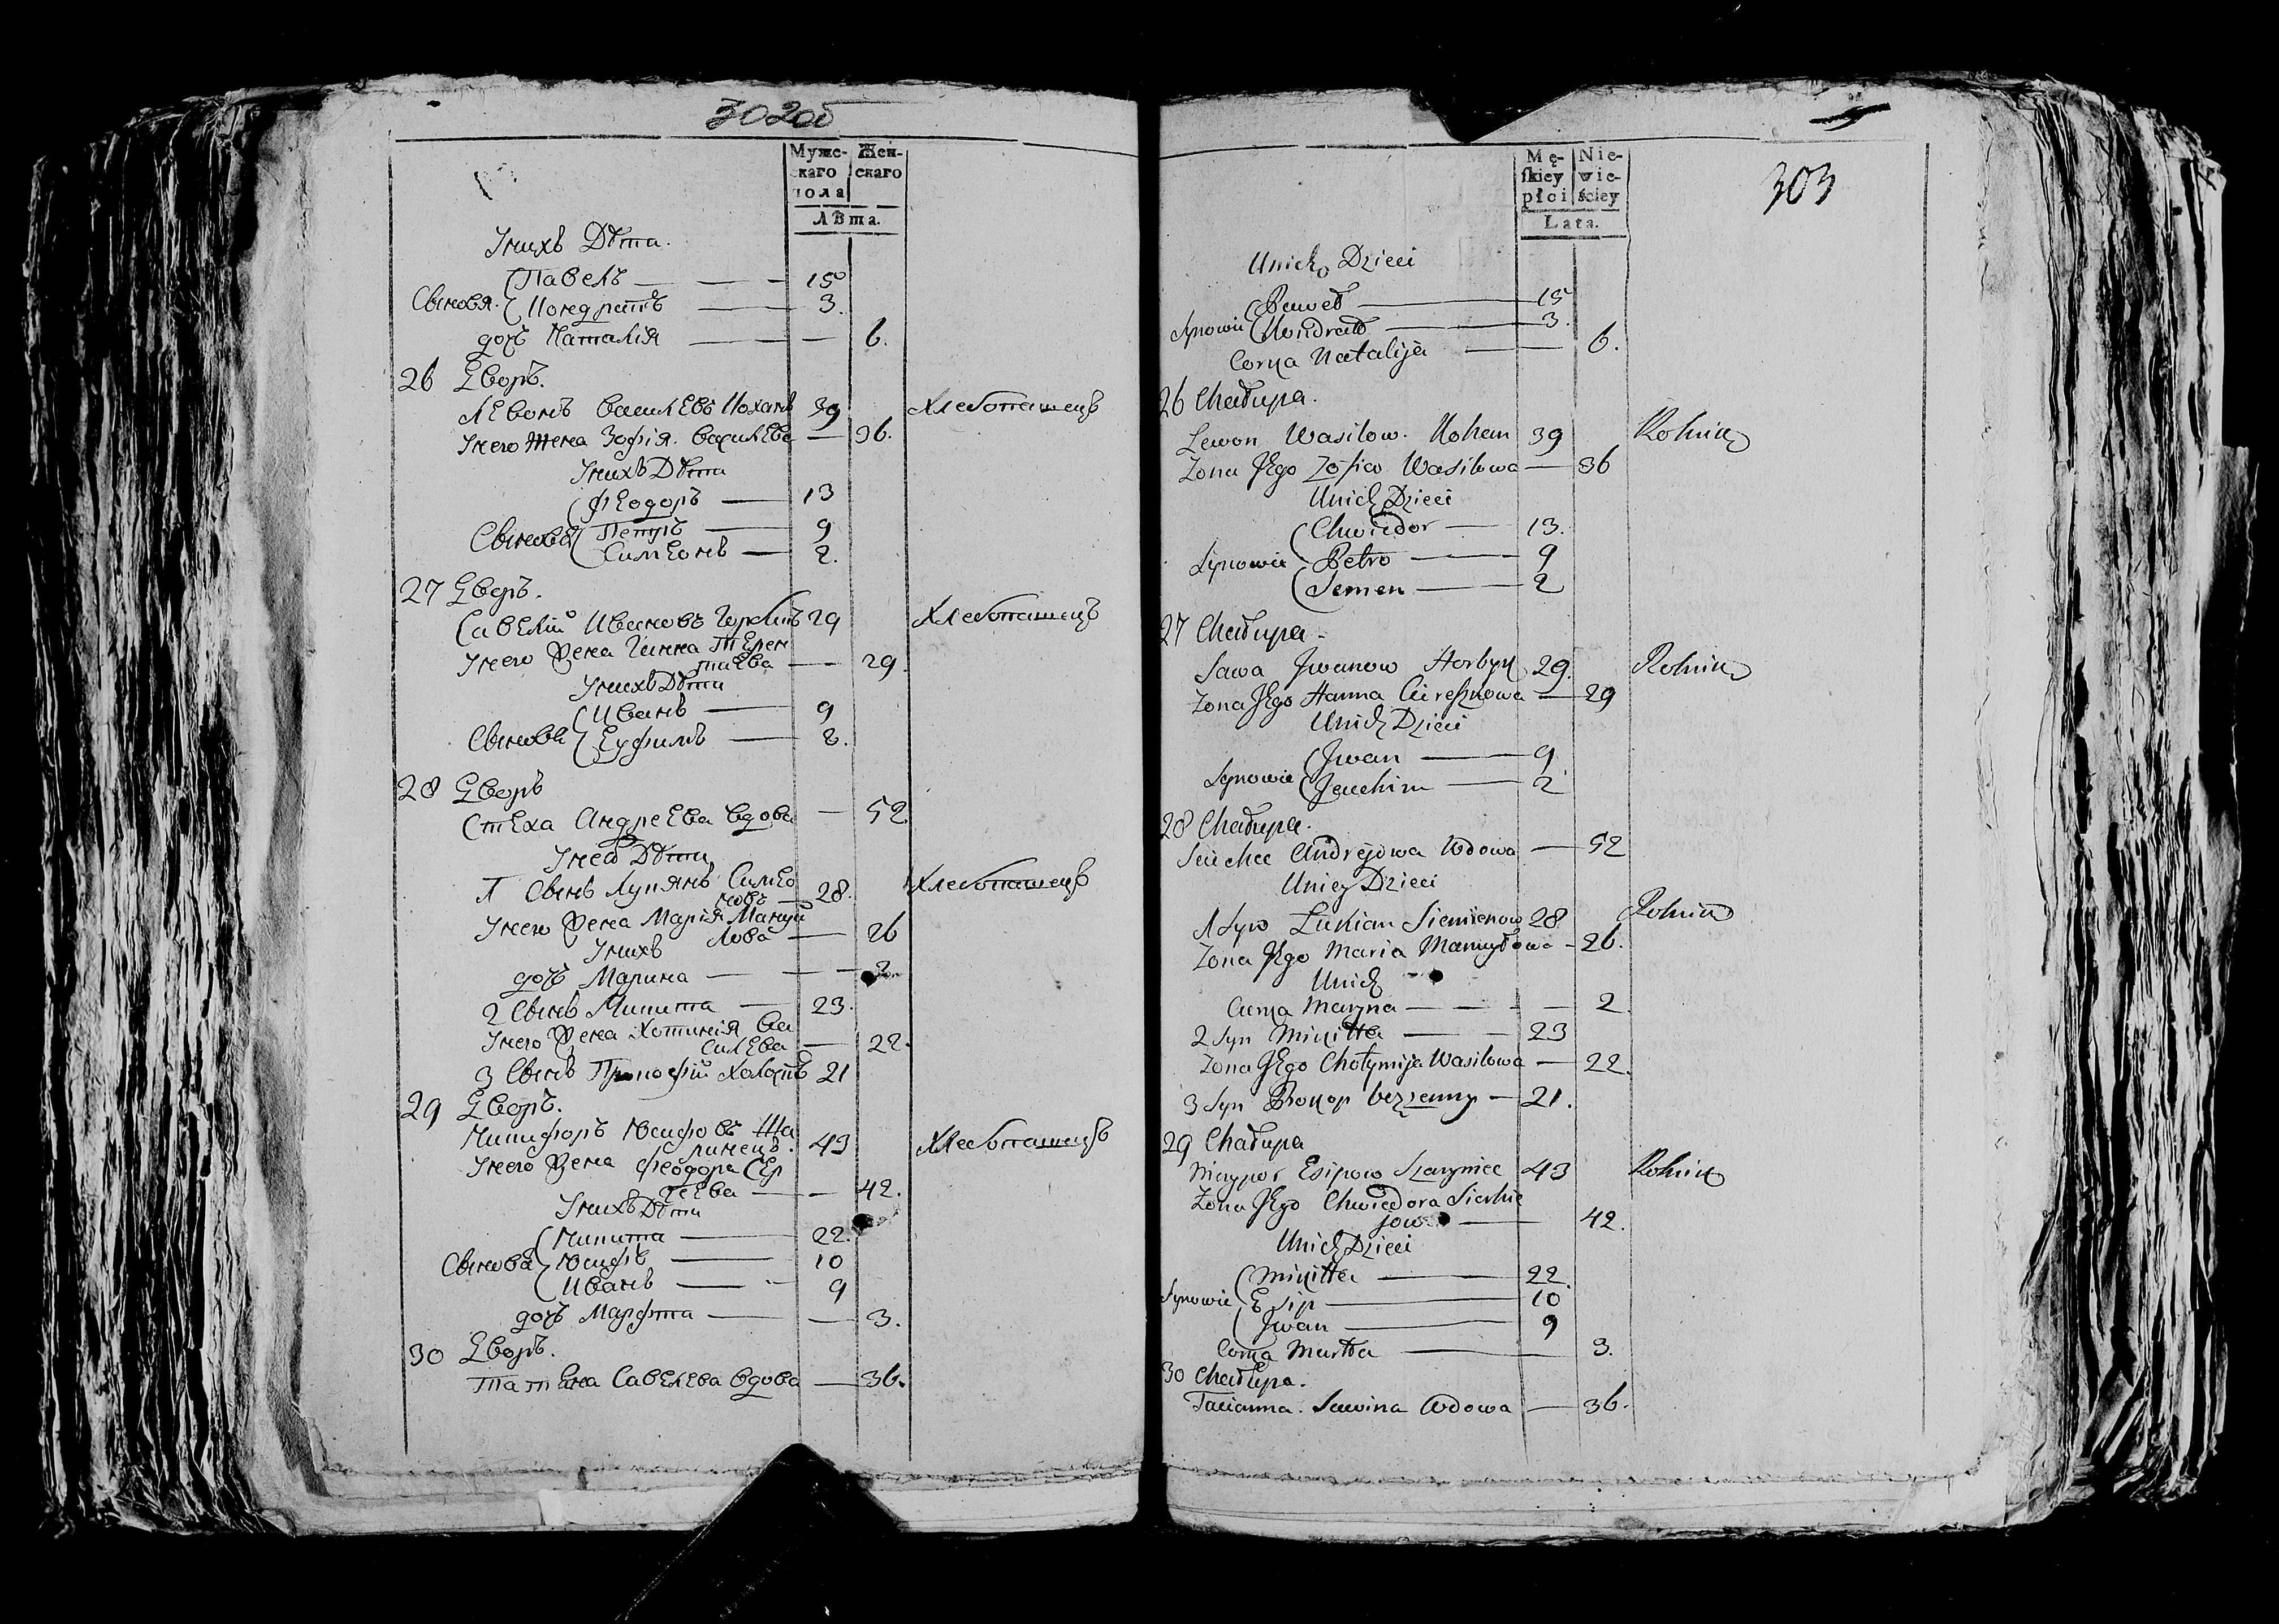 302об
Муже- Жен-
скаго скаго
пола
Лѣта.
Унихъ Дѣти.
Павелъ — 15
Сыновя. Кондратъ — 3.
дочь Наталія — 6.
26 Дворъ.
Левонъ Василевъ Коханъ 39 Хлебопашецъ
Унего жена Зофія Василева — 36.
Унихъ Дѣти
Феодоръ — 13
Сыновя Петръ — 9
Симеонъ — 2.
27 Дворъ.
Савелій Ивановъ 29 Хлебопашецъ
Унего жена Ганна Терен
тиева — 29.
Унихъ Дѣти
Иванъ — 9
Сыновя Еуфимъ — 2.
28 Дворъ
Стеха Андреева вдова — 52
Унея Дѣти
1 Сынъ Лукянъ Симео
новъ — 28. Хлебопашецъ
Унего жена Марія Мануй
лова — 26
Унихъ
дочь Марина — 2
2 Сынъ Микита — 23.
Унего жена Хотинія Ва
силева — 22.
3 Сынъ Прокофій Холостъ 21
29 Дворъ.
Никифоръ Юсифовъ Ша
ринецъ. 43 Хлебопашецъ
Унего жена Феодора Сер
геева — 42.
Унихъ Дѣти
Микита — 22.
Сыновя Юсифъ — 10
Иванъ — 9
дочь Марфта — 3.
30 Дворъ.
Татіяна Савелева вдова — 36.
303
Mę- Nie-
ſkiey wie-
płci ściey
Lata.
Unich Dzieci
Paweł — 15
Synowie Kondrat — 3.
Corka Natalija — 6.
26 Chałupa.
Lewon Wasilow. Kohan 39 Rolnik
Zona Jego Zofia Wasilowa — 36
Unich Dzieci
Chwiedor — 13.
Synowie Petro — 9
Semen — 2
27 Chałupa.
Sawa Jwanow Horbyk 29. Rolnik
Zona Jego Hanna Cireszkowa — 29
Unich Dzieci
Jwan — 9
Synowie Jauchim — 2
28 Chałupa.
Sciecha Andrejowa Wdowa — 52
Uniey Dzieci
1 Syn Lukian Siemienow 28 Rolnik
Zona Jego Maria Manuyłowa — 26.
Unich
Curka Maryna — 2
2 Syn Mikitta — 23
Zona Jego Chotymija Wasilowa — 22.
3 Syn Prokop bezżenny — 21.
29 Chałupa
Nikypor Esipow Szaryniec 43 Rolnik
Zona Jego Chwiedora Sierhie
jowa — 42.
Unich Dzieci
Mikitta — 22.
Synowie Esip — 10
Jwan — 9
Corka Martta — 3.
30 Chałupa.
Tacianna. Sawina Wdowa — 36.